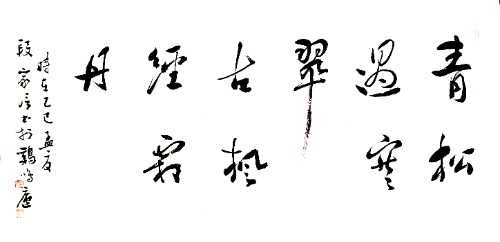 青松
遇寒
翠
古楓
經霜
丹
時在乙巳孟夏
段家書於鳴廬